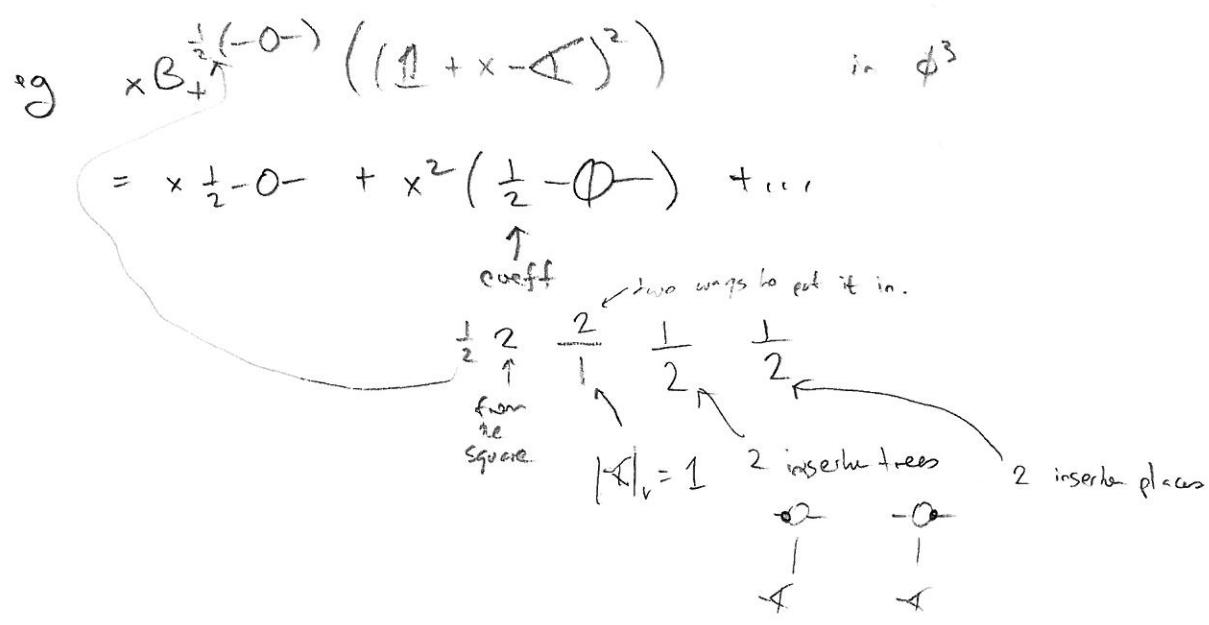 eg x B₊^{½(-O-)} ((𝟙 + x -<)²) in ϕ³
= x ½ -O- + x² (½ -O-) + ...
coeff
two ways to put it in.
½ 2 2/1 1/2 1/2
from
the
square
|-<|ᵥ = 1 2 insertion trees 2 insertion places